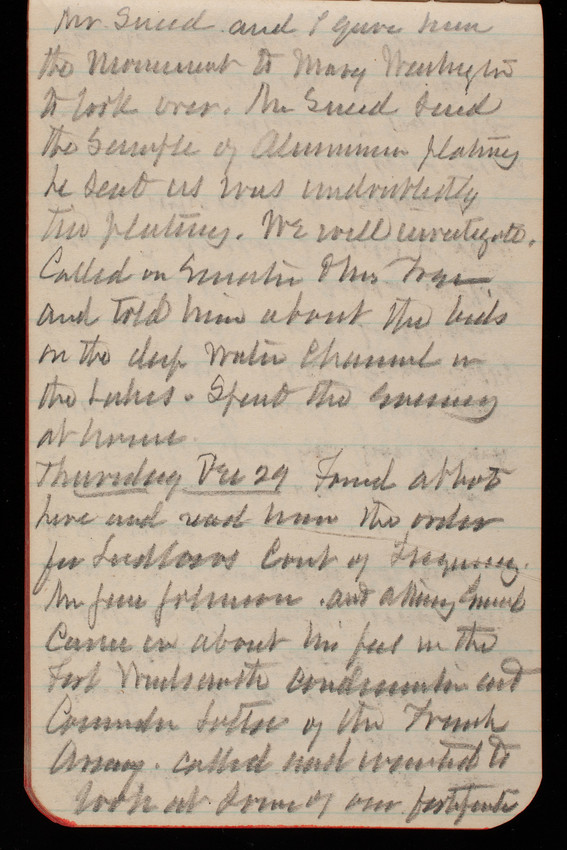 Mr Sneed and I gave him
the Monument to Mary Washington
to look over. Mr Sneed said
the Sample of Aluminum plating
he sent us was undoubtedly
tin plating. We will investigate.
Called on Senator
and told him about the bids
on the deep Water Channel in
the Lakes. Spent the Evening
at home
Thursday Dec 29 Found Abbot
here and read him the order
for Court of Inquiry.
Mr Johnson and attorney
Came in about his fee in the
Fort Wadsworth condemnation and
of the French
Army called and wanted to
look at some of our fortificate